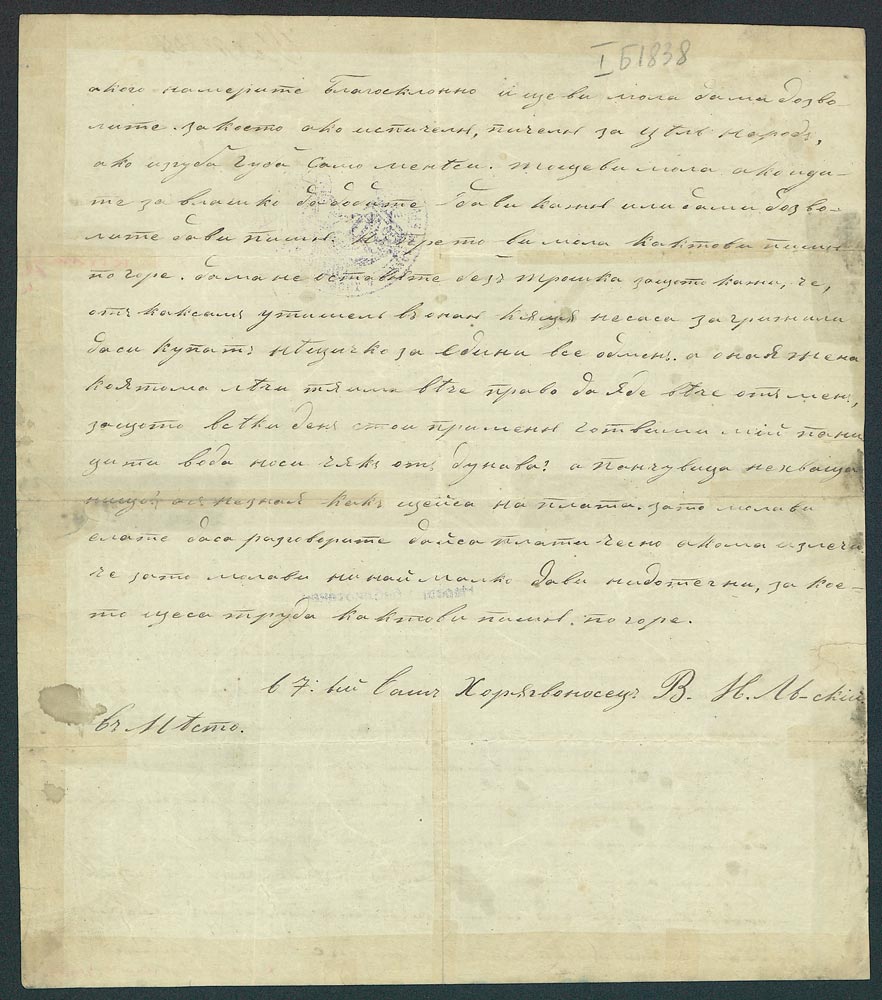 I Б 1838
акого намерите благосклонно и ще ви мола дама дозво-
лите. за което ако испичелѭ, пичелѭ за цѣль народъ,
ако изгубѭ губѭ само менѣси. тѭще ви мола ако иди-
те за влашко да дойдите да ви кажѭ или дами дозво-
лите дави пишѭ. ви мола кактови пишѭ
погоре. дамане оставите безъ трошка защото кажи, че,
отъ каксамъ утишелъ въ онаѭ кѫщѭ несаса загрижили
даси купатъ нѣщичко за едини все обменъ. а онаѭ жена
коятома лѣчи тя има вѣче право да яде вѣче отъ менъ,
защото всѣки денъ стои применѭ готвими мій пани
цити вода носи чякъ отъ дунава? а панчувица нехваща
нищо азъ незная какъ щейса на плата. зато молави
елате даса разговорите дайса плати чесно акома излечи
че зато молави на най малко дави надотечи, за кое-
то щеса труда кактови пишѭ. по горе.
в 7: ый Вашъ Хорягвоносецъ В. И. Лв-скій
въ Мѣсто.